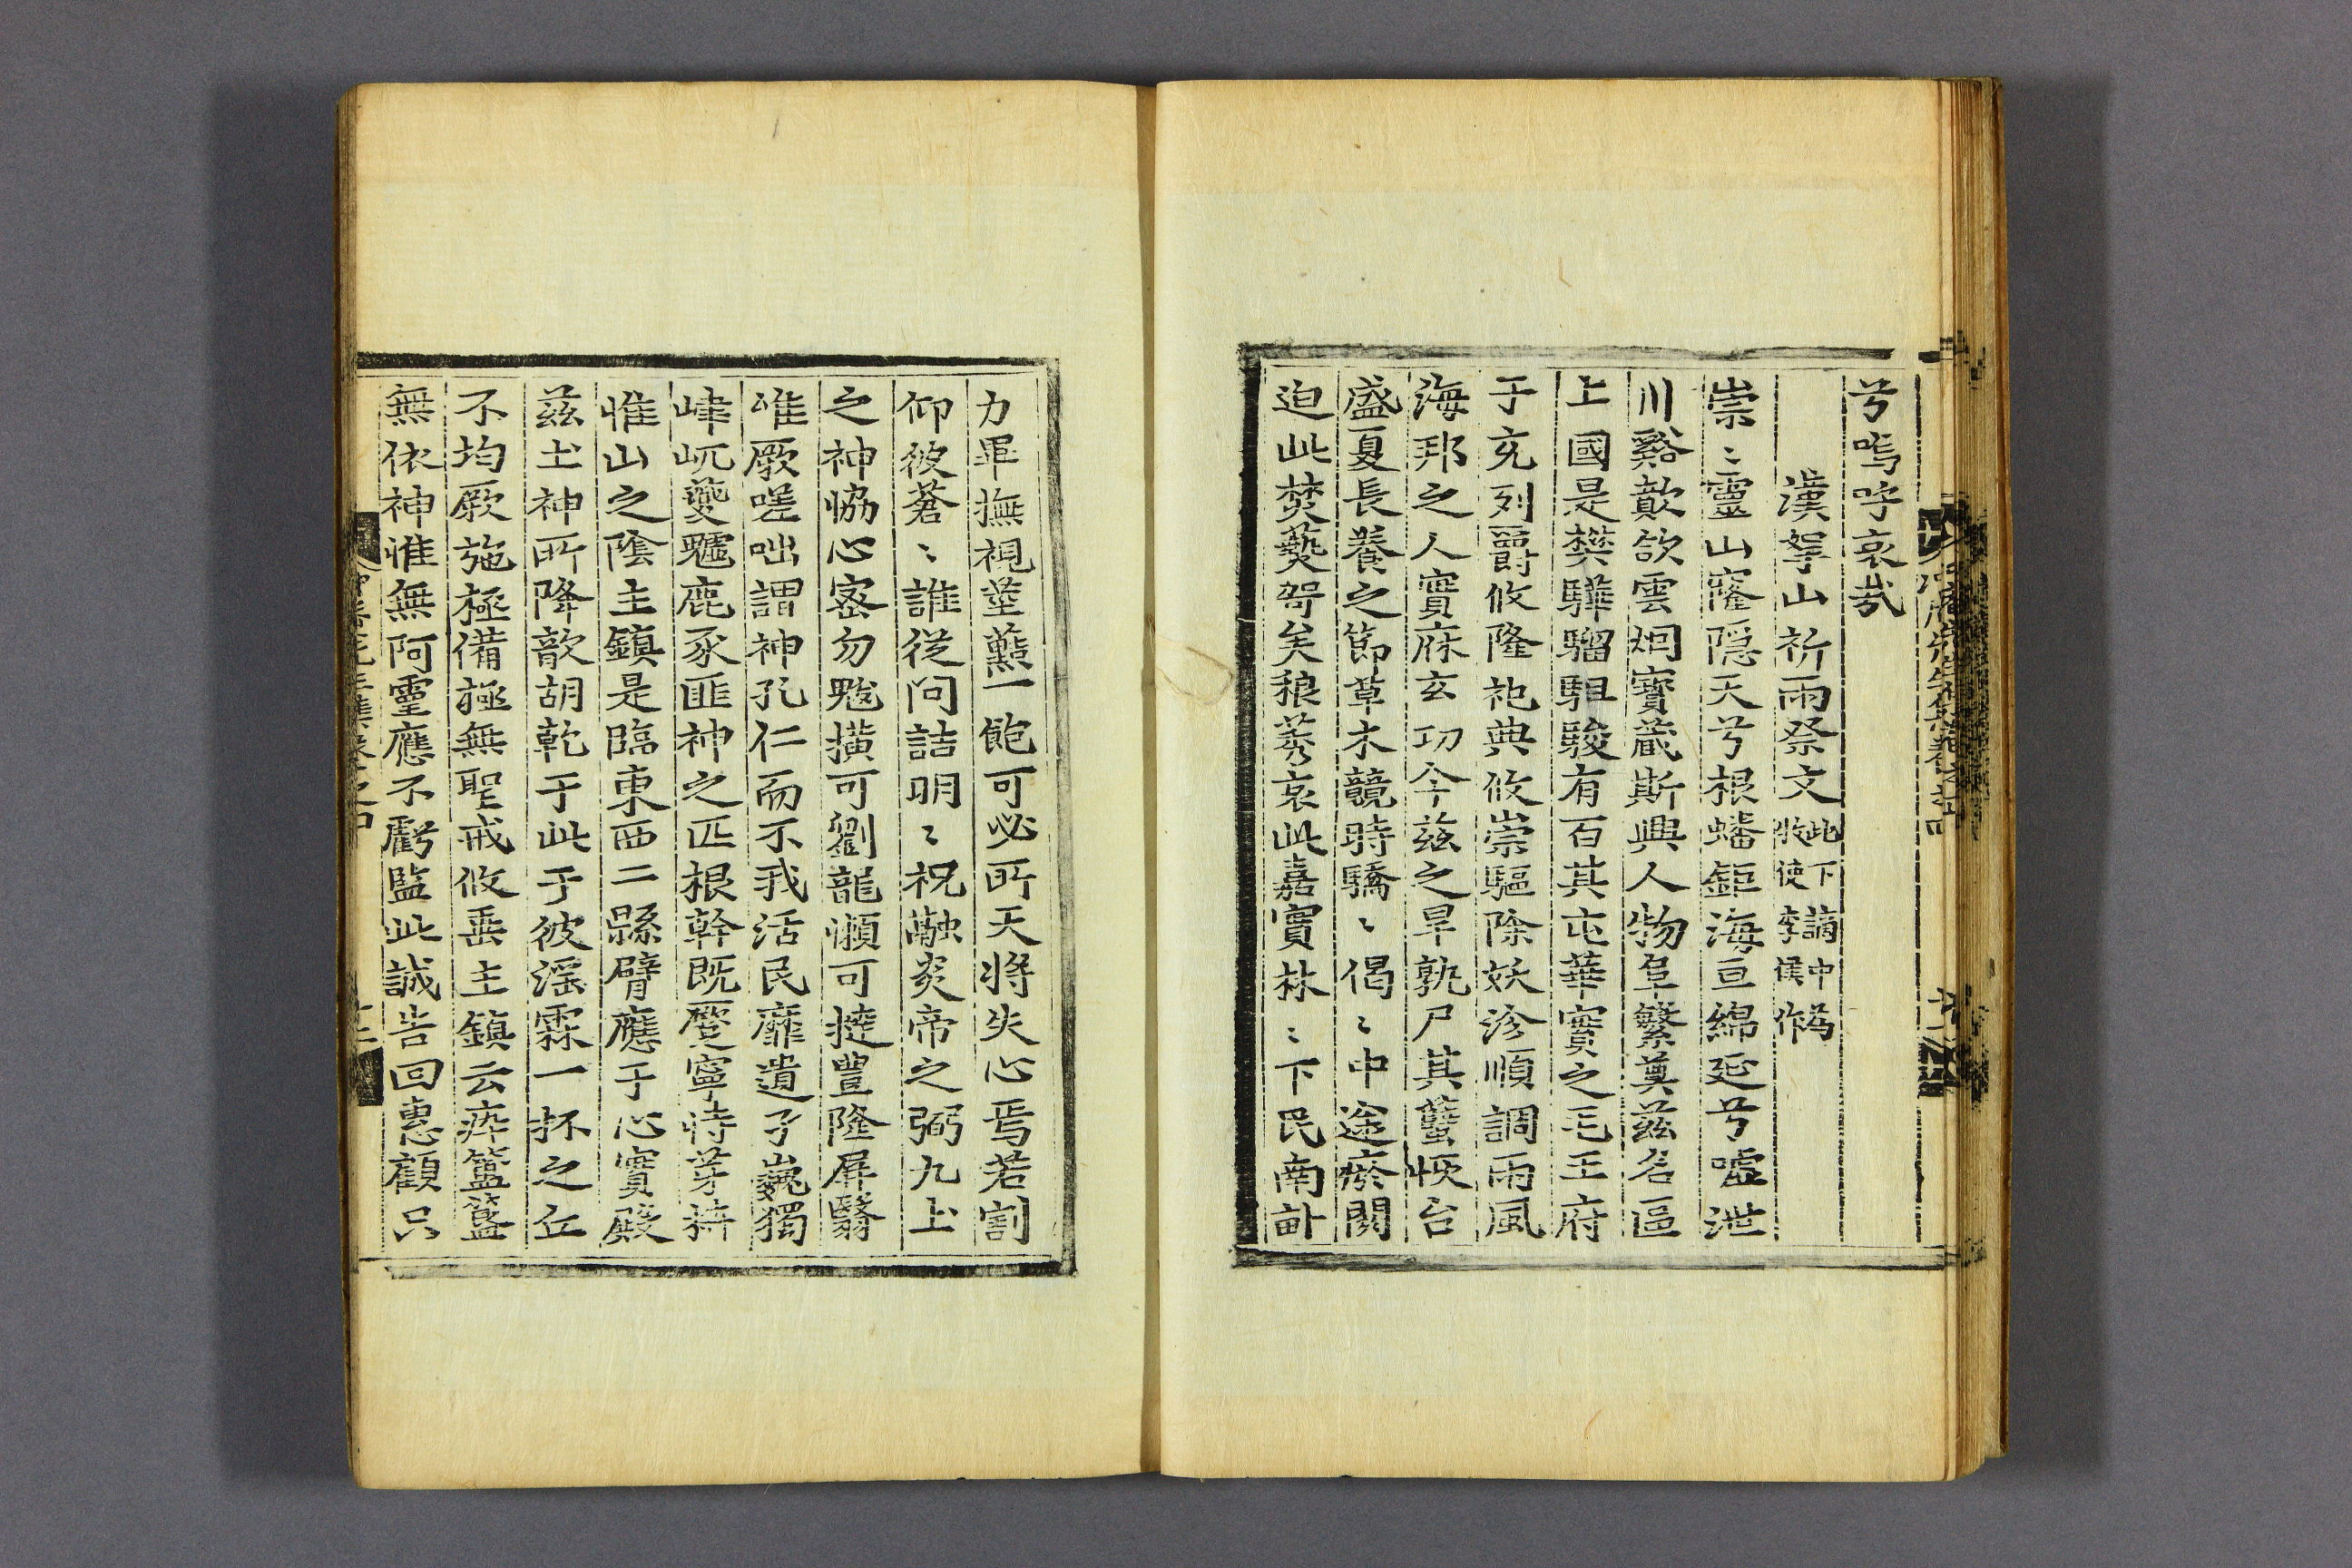 兮嗚呼哀哉
漢拏山祈雨祭文 此下謫中爲牧使李侯作
崇〻靈山窿隱天兮根蟠鉅海亘綿延兮噓泄
川谿歊欲雲烟寶藏斯興人物阜繁奠茲名區
上國是樊驊騮駔駿有百其屯華實之毛王府
于充列爵攸隆祀典攸崇驅除妖沴順調雨風
海邦之人實庥玄功今茲之旱孰尸其蠚恢台
盛夏長養之節草木競時驕〻偈〻中途瘀閼
迫此焚爇哿矣稂莠哀此嘉實林〻下民南畝
力畢撫視塋薰一飽可必所天將失心焉若割
仰彼蒼〻誰從問詰明〻祝融炎帝之弼九土
之神恊心宻勿魃擴可劉龍嬾可撻豐隆屏翳
唯厥嗟咄謂神孔仁而不我活民靡遺孑巍獨
崒屼夔魖鹿豕匪神之匹根幹既蹷寧恃芽枿
惟山之隂主鎮是臨東西二縣臂應于心實殿
茲土神所降歆胡乾于此于彼滛霖一抔之丘
不均厥施極備極無聖戒攸垂主鎮云瘁簠簋
無依神惟無阿靈應不虧監此誠告回惠顧只